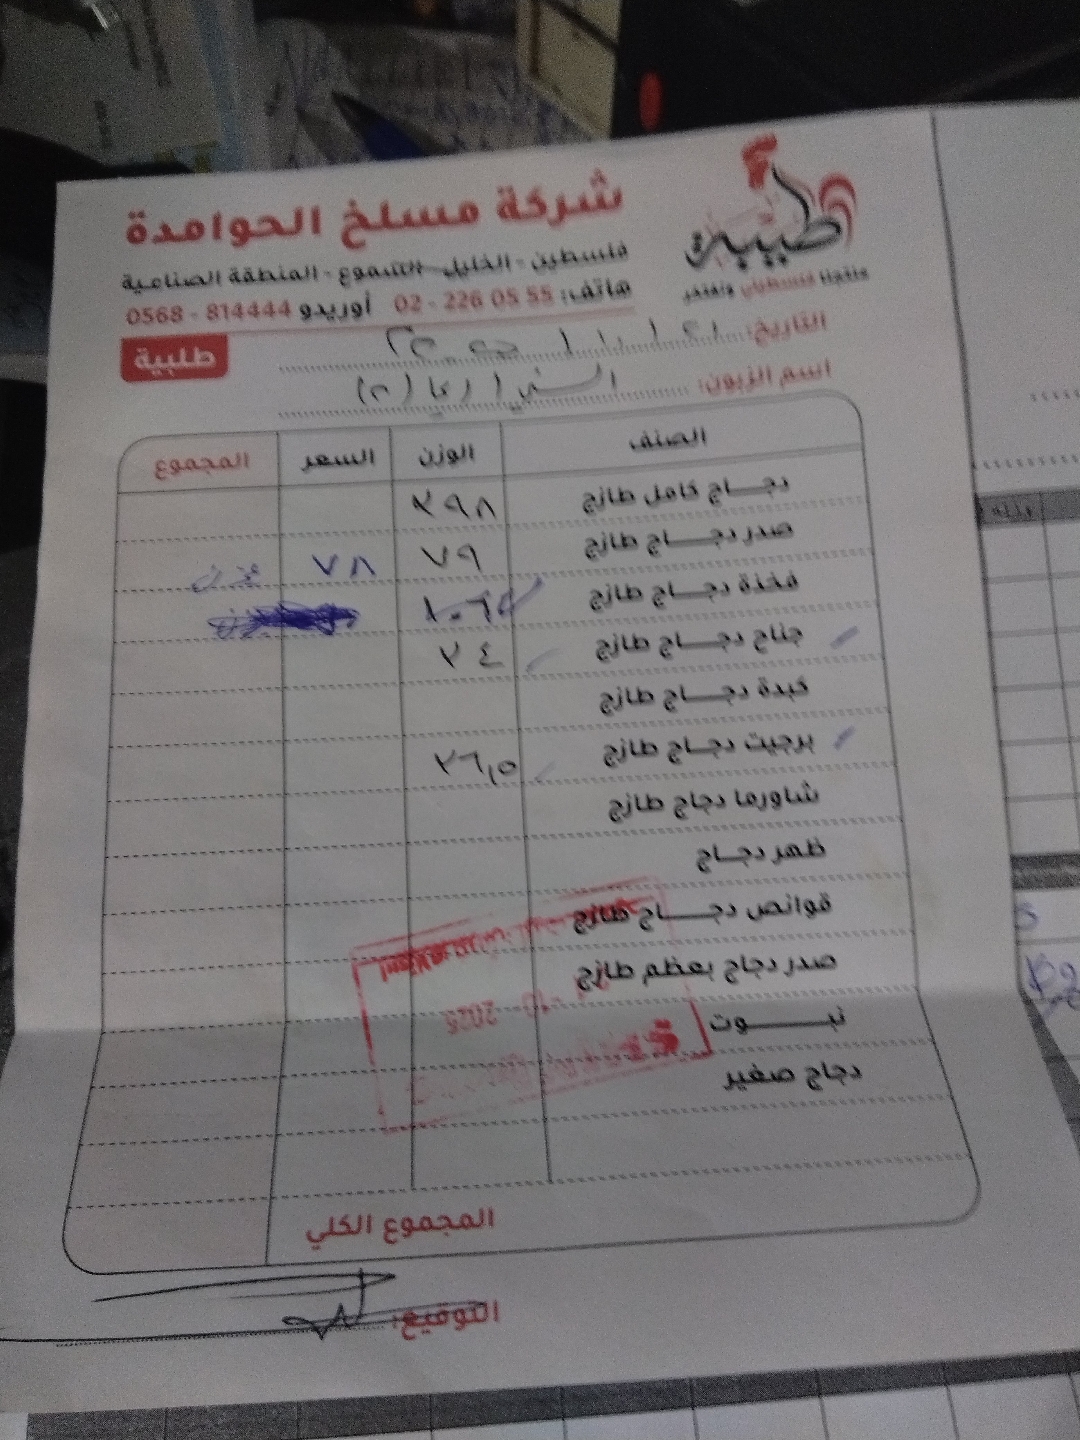 شركة مسلخ الحوامدة
طيبة
فلسطين - الخليل - السموع - المنطقة الصناعية
منتجنا فلسطيني ونفتخر
هاتف: 02 - 226 05 55 أوريدو 0568 - 814444
التاريخ:
طلبية
اسم الزبون:
الصنف الوزن السعر المجموع
دجاج كامل طازج ٢٩٨
صدر دجاج طازج ٧٩ ٧٨
فخذة دجاج طازج
جناح دجاج طازج ٢٤
كبدة دجاج طازج
برجيت دجاج طازج ٢٦,٥
شاورما دجاج طازج
ظهر دجاج
قوانص دجاج طازج
صدر دجاج بعظم طازج
-10- 2025
نبوت
دجاج صغير
المجموع الكلي
التوقيع: